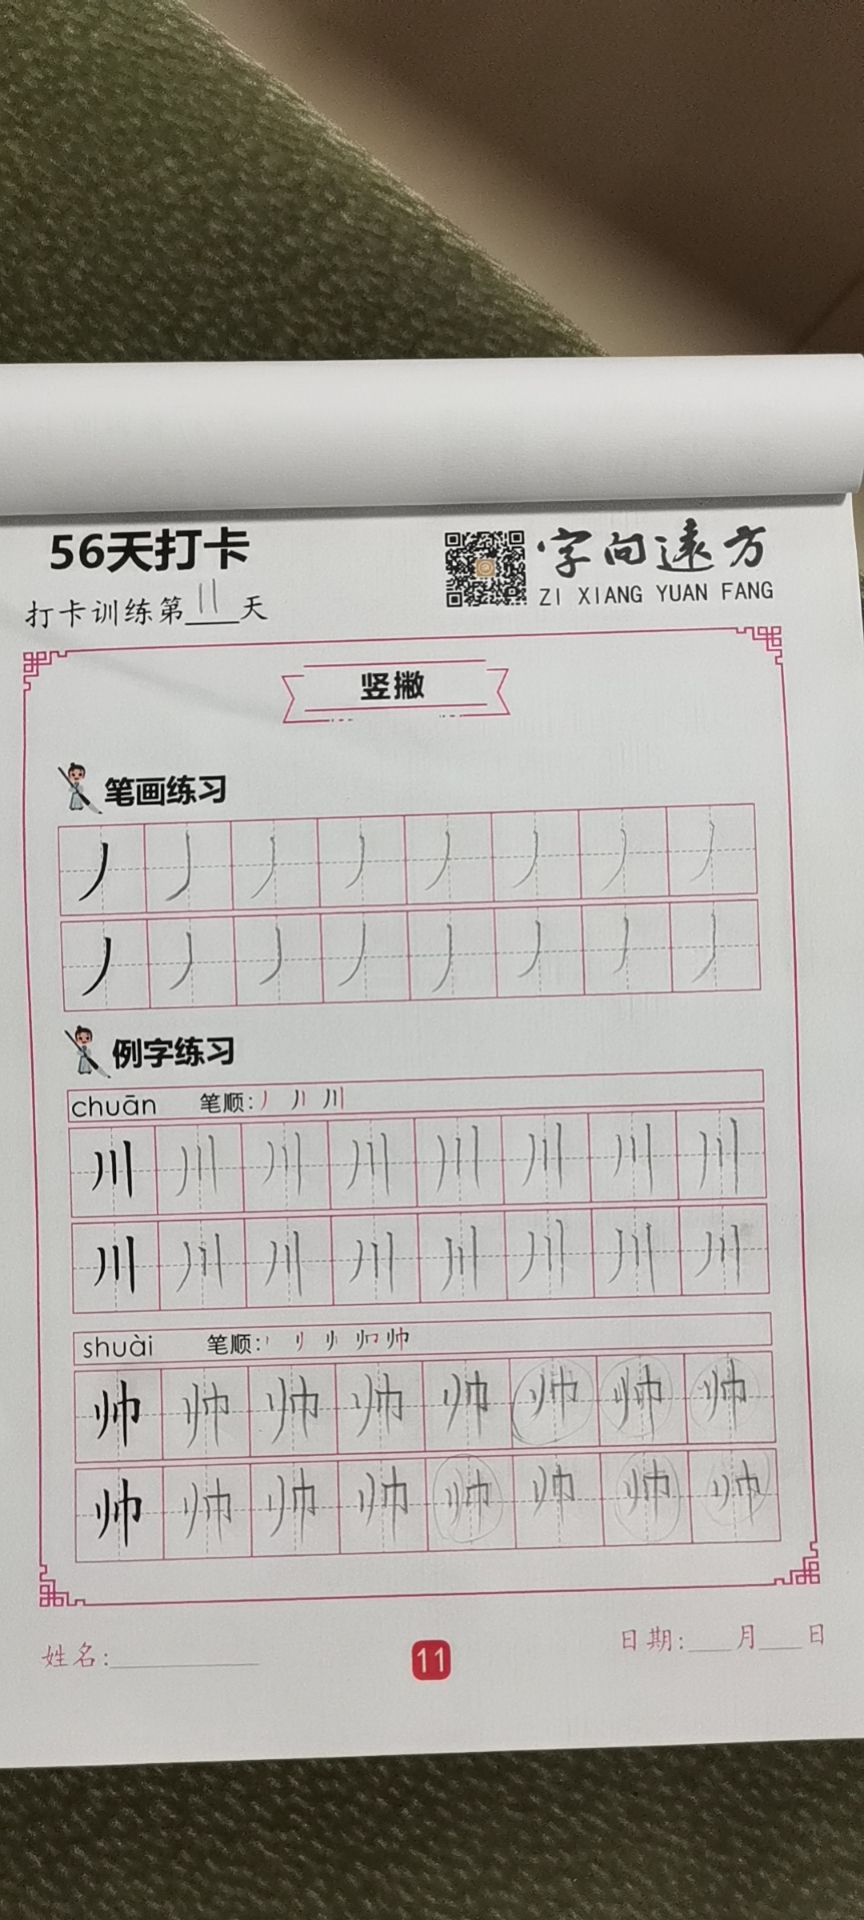 56天打卡
字向遠方
ZI XIANG YUAN FANG
打卡训练第11天
竖撇
笔画练习
丿 丿 丿 丿 丿 丿 丿 丿
丿 丿 丿 丿 丿 丿 丿 丿
例字练习
chuān 笔顺: 丿 丿丨 川
川 川 川 川 川 川 川 川
川 川 川 川 川 川 川 川
shuài 笔顺: 帅
帅 帅 帅 帅 帅 帅 帅 帅
帅 帅 帅 帅 帅 帅 帅 帅
姓名:
11
日期: 月 日